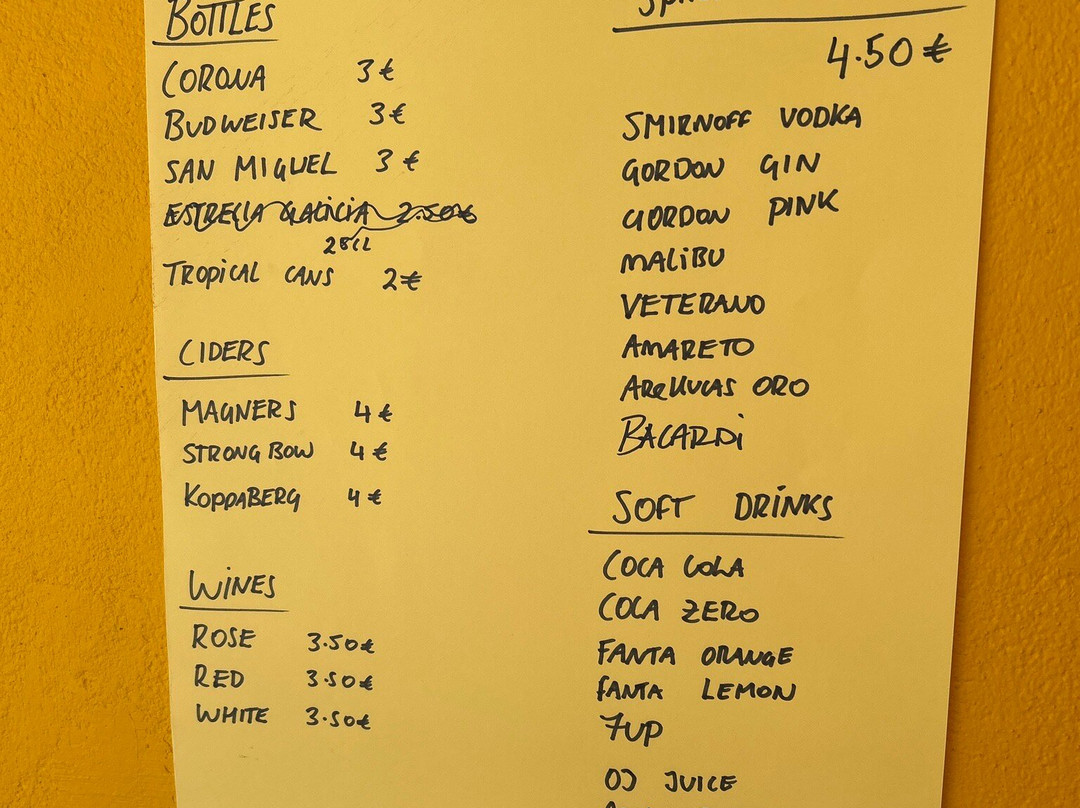 BOTTLES
CORONA 3€
BUDWEISER 3€
SAN MIGUEL 3€
ESTRELLA GALICIA 2.50€
28CL
TROPICAL CANS 2€
CIDERS
MAGNERS 4€
STRONG BOW 4€
KOPPABERG 4€
WINES
ROSE 3.50€
RED 3.50€
WHITE 3.50€
4.50€
SMIRNOFF VODKA
GORDON GIN
GORDON PINK
MALIBU
VETERANO
AMARETO
AREHUCAS ORO
BACARDi
SOFT DRINKS
COCA COLA
COLA ZERO
FANTA ORANGE
FANTA LEMON
7UP
OJ JUICE